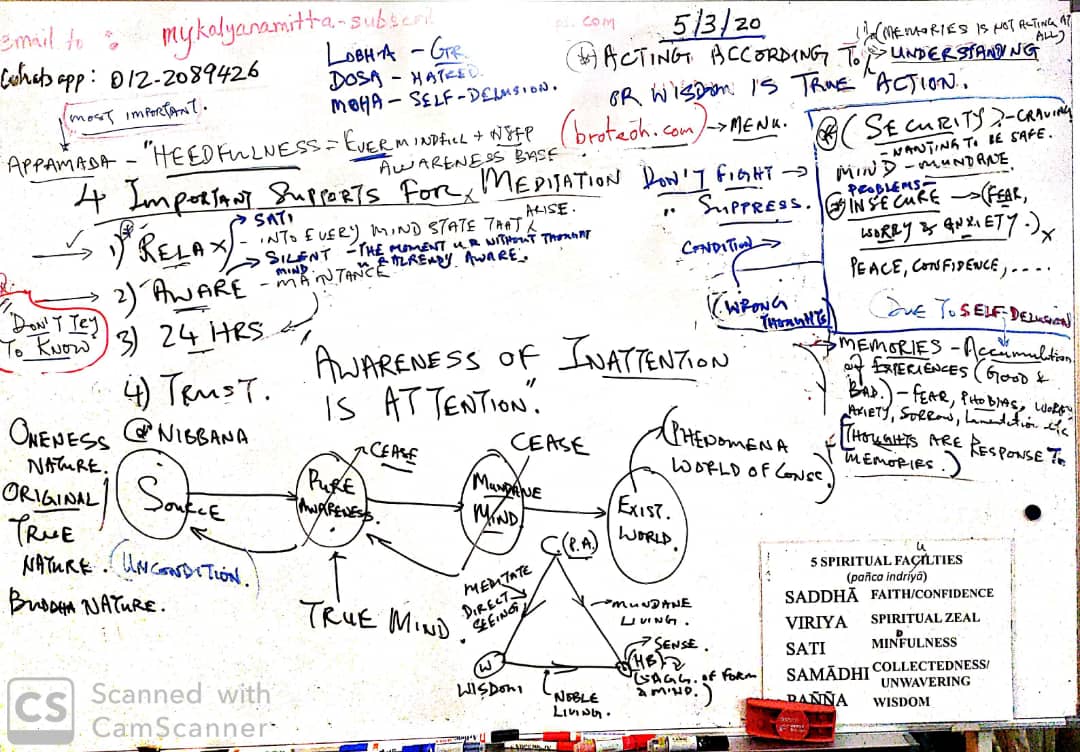 Email to : mykalyanamitta-subscri
.com
Whatsapp: 012-2089426
(MOST IMPORTANT.
LOBHA - GTR
DOSA - HATRED.
MOHA - SELF-DELUSION.
5/3/20
(MEMORIES IS NOT ACTING AT ALL)
ACTING ACCORDING TO UNDERSTANDING
OR WISDOM IS TRUE ACTION.
(broteoh.com) → MENU.
APPAMADA - "HEEDFULNESS = EVERMINDFUL +
AWARENESS BASE.
4 IMPORTANT SUPPORTS FOR MEDITATION
DON'T FIGHT →
" SUPPRESS.
CONDITION →
(WRONG THOUGHTS)
1) RELAX
→ SATI
- INTO EVERY MIND STATE THAT ARISE.
→ SILENT MIND - THE MOMENT U R WITHOUT THOUGHT
U R ALREADY AWARE.
2) AWARE - MAINTANCE
3) 24 HRS
4) TRUST.
"DON'T TRY
TO KNOW"
AWARENESS OF INATTENTION
IS ATTENTION."
(SECURITY) - CRAVING
- WANTING TO BE SAFE.
MIND - MUNDANE
PROBLEMS
INSECURE → (FEAR,
WORRY & ANXIETY.)
PEACE, CONFIDENCE, ....
DUE TO SELF-DELUSION
MEMORIES - Accumulation
of EXPERIENCES (GOOD &
BAD.) - FEAR, PHOBIAS, WORRY
AXIETY, SORROW, Lamentation etc
(THOUGHTS ARE RESPONSE TO
MEMORIES.)
ONENESS
NATURE.
ORIGINAL
TRUE
NATURE.
BUDDHA NATURE.
NIBBANA
SOURCE
(UNCONDITION.)
PURE
AWARENESS.
CEASE
TRUE MIND.
MUNDANE
MIND.
CEASE
EXIST.
WORLD.
(PHENOMENA
WORLD OF CONSC.)
(P.A.)
MEDITATE
DIRECT
SEEING
→ MUNDANE
LIVING.
W
WISDOM
NOBLE
LIVING.
→ SENSE.
(HB)
(5 AGG. OF FORM
& MIND.)
5 SPIRITUAL FACILTIES
u
(pañca indriyā)
SADDHĀ FAITH/CONFIDENCE
VIRIYA SPIRITUAL ZEAL
SATI MINFULNESS
D
SAMĀDHI COLLECTEDNESS/
UNWAVERING
PAÑÑA WISDOM
CS Scanned with
CamScanner